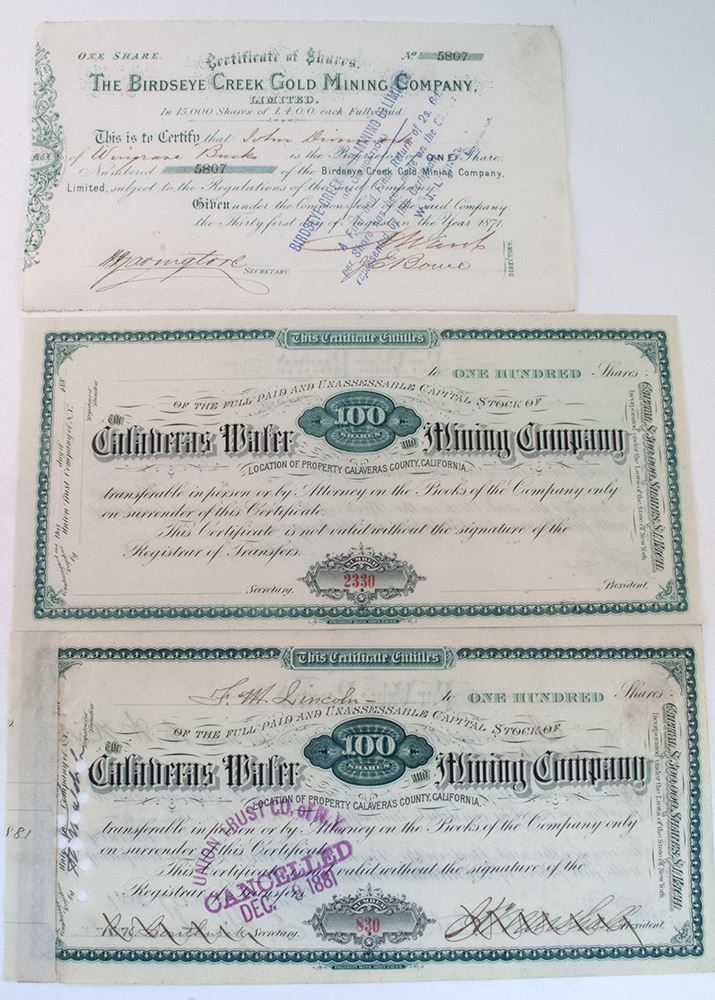 ONE SHARE. Certificate of Shares, No 5807
THE BIRDSEYE CREEK GOLD MINING COMPANY,
LIMITED.
In 15,000 Shares of £4.0.0. each Fully Paid
This is to Certify that John
of Wingrave Bucks is the Proprietor of ONE Share.
Numbered 5807 of the Birdseye Creek Gold Mining Company,
Limited, subject to the Regulations of the said Company.
Given under the Common Seal of the said Company
the Thirty first day of August in the Year 1871.
SECRETARY.
DIRECTORS.
BIRDSEYE CREEK GOLD MINING CO LIMITED
A First and Final Return of 2s. 6d.
per Share has been made on the
This Certificate Entitles
to ONE HUNDRED Shares
OF THE FULL PAID AND UNASSESSABLE CAPITAL STOCK OF
100
SHARES
The Calaveras Water and Mining Company
LOCATION OF PROPERTY CALAVERAS COUNTY, CALIFORNIA.
transferable in person or by Attorney on the Books of the Company only
on surrender of this Certificate.
This Certificate is not valid without the signature of the
Registrar of Transfers.
NUMBER
2330
Secretary. President.
Countersigned and
Union Trust Company of N.Y.
Registrar of Transfers
188
Incorporated under the Laws of the State of New York
FRANKLIN BANK NOTE CO. N.Y.
This Certificate Entitles
F. W. Lincoln to ONE HUNDRED Shares
OF THE FULL PAID AND UNASSESSABLE CAPITAL STOCK OF
100
SHARES
The Calaveras Water and Mining Company
LOCATION OF PROPERTY CALAVERAS COUNTY, CALIFORNIA.
transferable in person or by Attorney on the Books of the Company only
on surrender of this Certificate.
This Certificate is not valid without the signature of the
Registrar of Transfers.
UNION TRUST CO. of N.Y.
CANCELLED
DEC. 9 1881
NUMBER
830
Secretary. President.
Incorporated under the Laws of the State of New York
881
FRANKLIN BANK NOTE CO. N.Y.